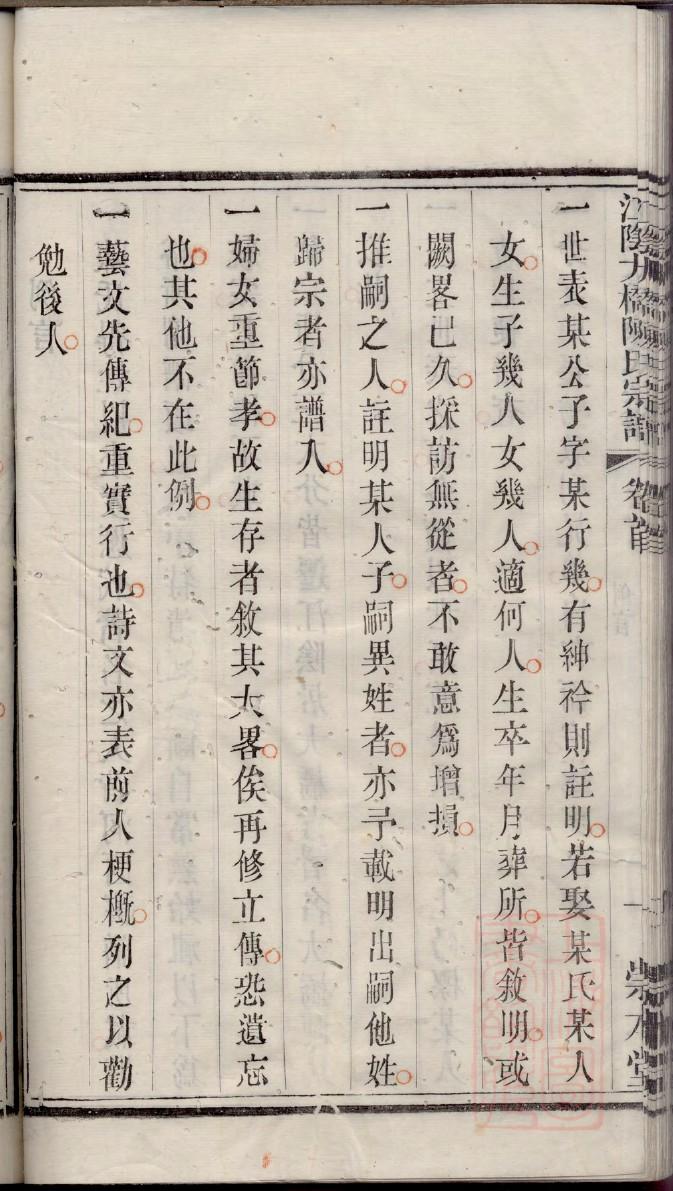 江陰九橋陳氏宗譜 卷首 一 崇本堂
一世表某公子字某行幾有紳衿則註明若娶某氏某人
女生子幾人女幾人適何人生卒年月葬所皆敘明或
闕畧已久採訪無從者不敢意爲增損
一推嗣之人註明某人子嗣異姓者亦予載明出嗣他姓
歸宗者亦譜入
一婦女重節孝故生存者敘其大畧俟再修立傳恐遺忘
也其他不在此例
一藝文先傳紀重實行也詩文亦表前人梗概列之以勸
勉後人